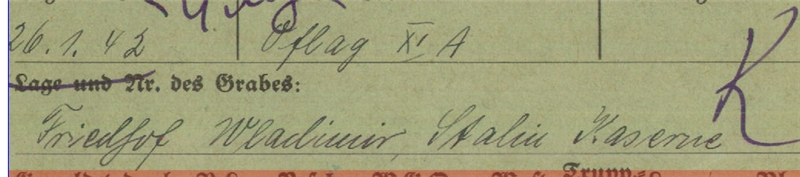 26.1.42 Oflag XI A
Lage und Nr. des Grabes:
Friedhof Wladimir, Stalin Kaserne K